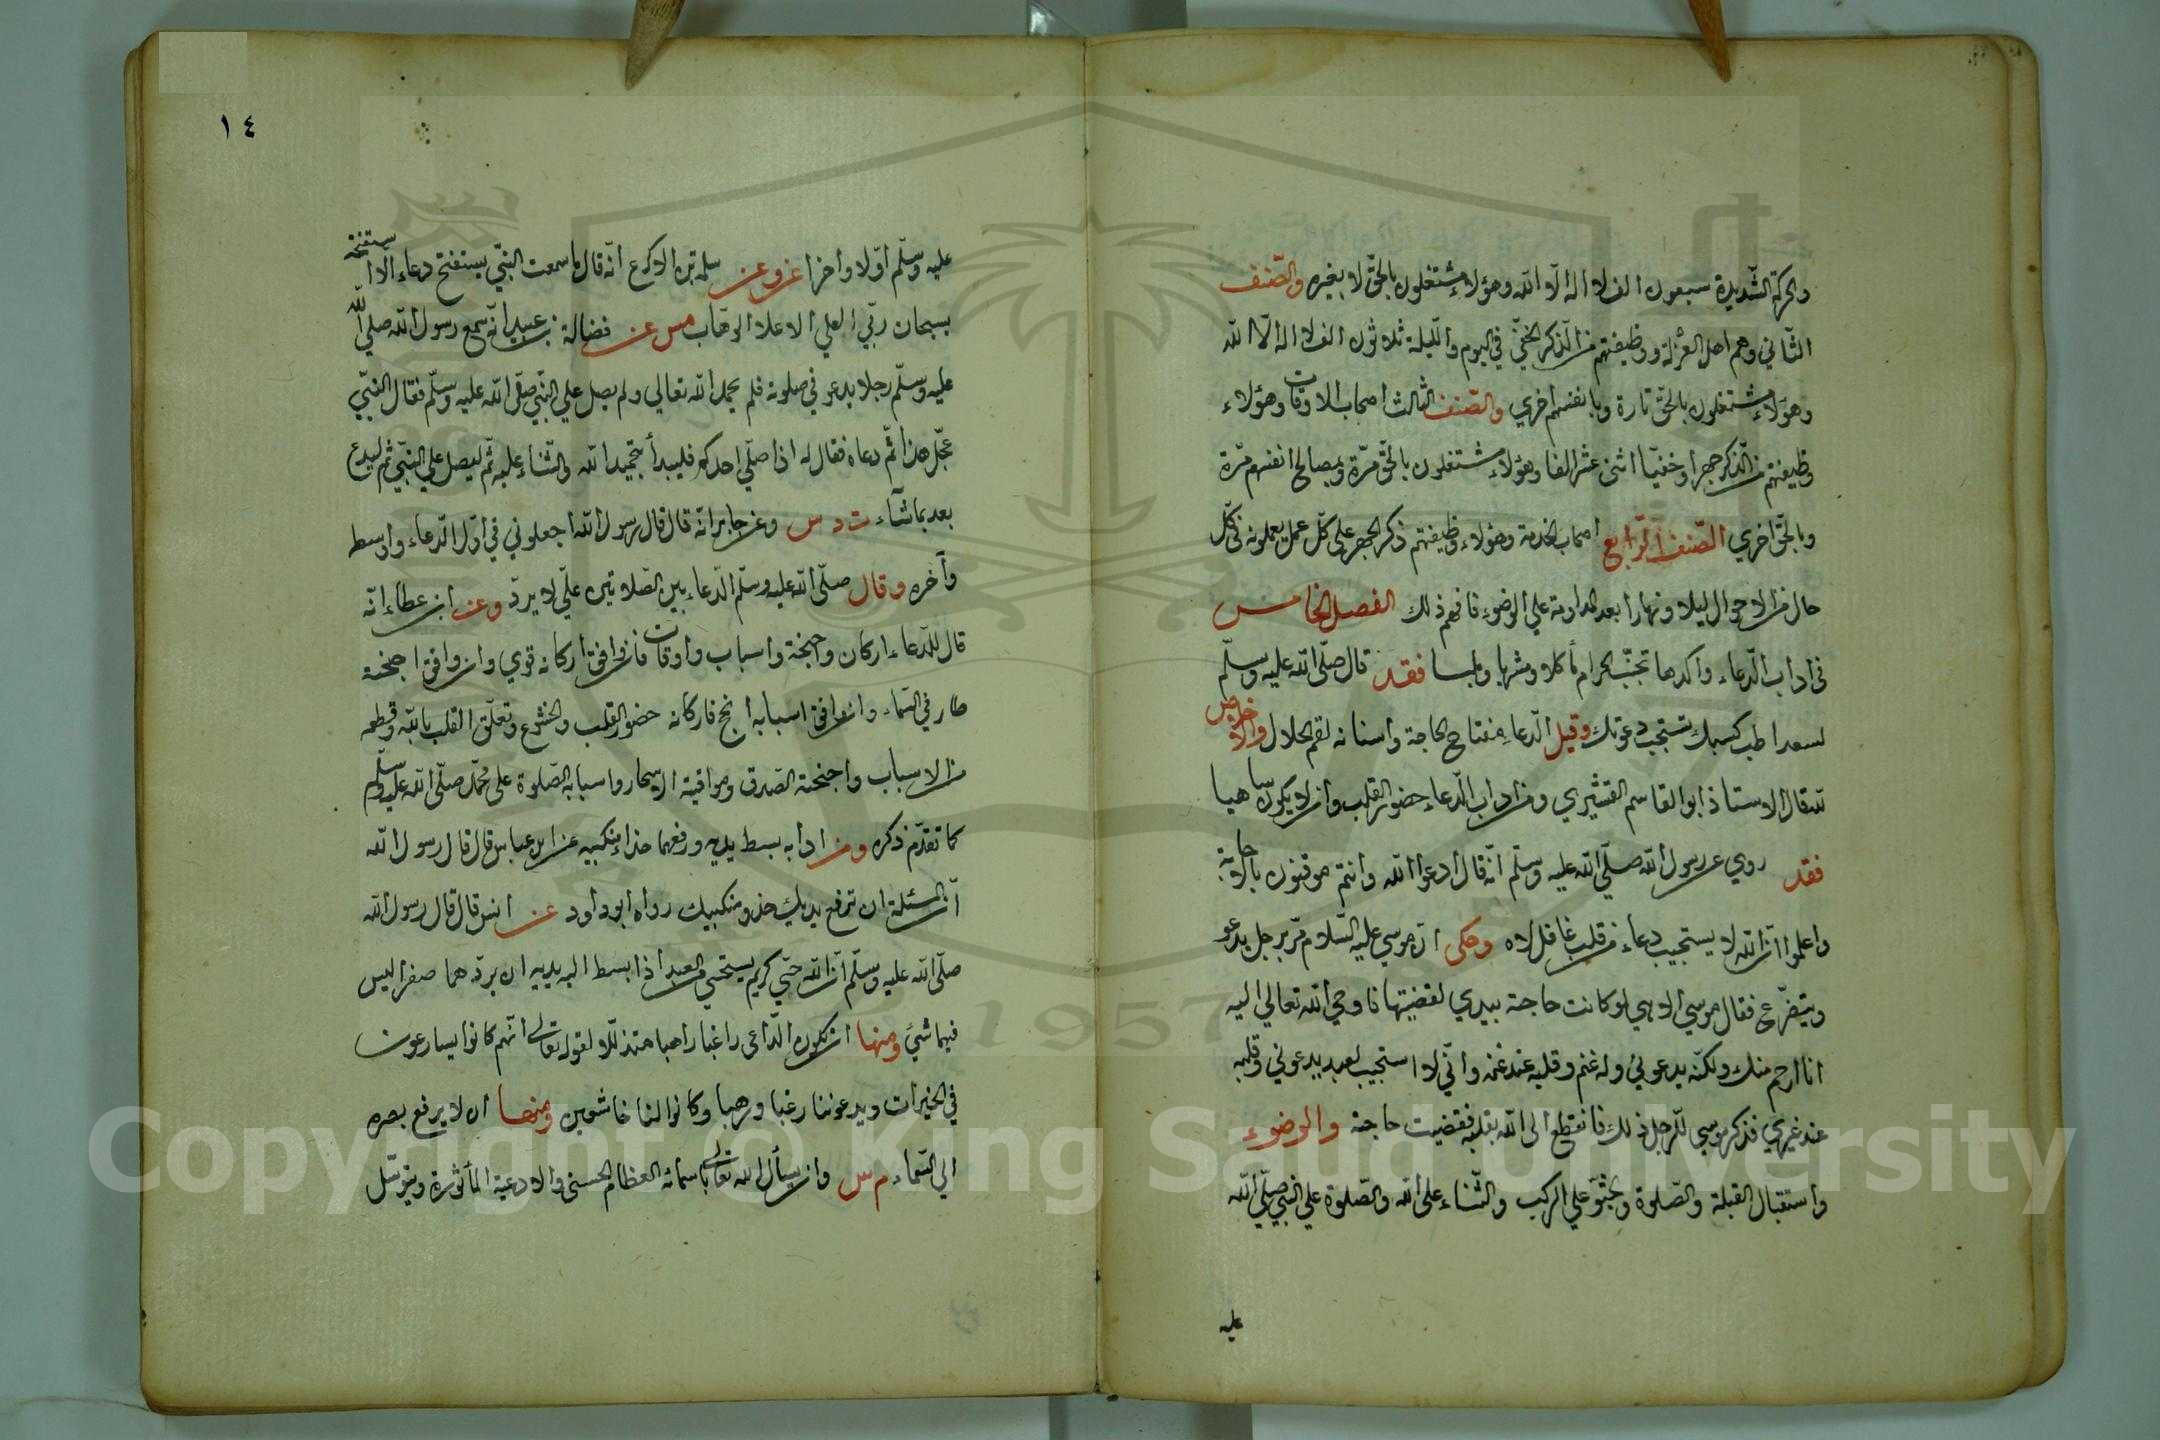 والحركة الشديدة سبعون الف لا اله الا الله وهؤلاء مشتغلون بالحق لا بغيره والصنف
الثاني وهم اهل العزلة ووظيفتهم من الذكر الخفي في اليوم والليلة ثلاثون الف لا اله الا الله
وهؤلاء مشتغلون بالحق تارة وبانفسهم اخري والصنف الثالث اصحاب الاوقات وهؤلاء
وظيفتهم من الذكر جهرا وخفيا اثنى عشر الفا وهؤلاء مشتغلون بالحق مرة وبمصالح انفسهم مرة
وبالحق اخري الصنف الرابع اصحاب الخدمة وهؤلاء وظيفتهم ذكر الجهر على كل عمل يعملونه في كل
حال من الاحوال ليلا ونهارا بعد المداومة علي الوضوء فافهم ذلك الفصل الخامس
في اداب الدعاء واكدها تجنب الحرام مأكلا ومشربا وملبسا فقد قال صلى الله عليه وسلم
لسعد اطب كسبك تستجب دعوتك وقيل الدعاء مفتاح الحاجة واسنانه لقم الحلال والاخلاص
لله قال الاستاذ ابو القاسم القشيري ومن اداب الدعاء حضور القلب وان لا يكون ساهيا
فقد روي عن رسول الله صلى الله عليه وسلم انه قال ادعوا الله وانتم موقنون بالاجابة
واعلموا ان الله لا يستجيب دعاء من قلب غافل لاه وحكى ان موسي عليه السلام مر برجل يدعو
ويتضرع فقال موسي الاهي لو كانت حاجة بيدي لقضيتها فاوحي الله تعالي اليه
انا ارحم منك ولكنه يدعوني وله غنم وقلبه عند غنمه واني لا استجيب لعبد يدعوني وقلبه
عند غيري فذكر موسي للرجل ذلك فانقطع الى الله بقلبه فقضيت حاجته والوضوء
واستقبال القبلة والصلوة والجثو علي الركب والثناء على الله والصلوة علي النبي صلى الله
عليه
١٤
عليه وسلم اولا واخرا عزو عن سلمة بن الاكوع انه قال ما سمعت النبي يستفتح دعاء الا استفتحه
بسبحان ربي العلي الاعلا الوهاب مس عن فضالة بن عبيد انه سمع رسول الله صلى الله
عليه وسلم رجلا يدعو في صلوته فلم يحمد الله تعالي ولم يصل علي النبي صلى الله عليه وسلم فقال النبي
عجل هذا ثم دعاه فقال له اذا صلي احدكم فليبدأ بتحميد الله والثناء عليه ثم ليصل علي النبي ثم ليدع
بعد بما شاء ت د س وعن جابر انه قال قال رسول الله اجعلوني في اول الدعاء واوسط
وآخره وقال صلى الله عليه وسلم الدعاء بين الصلاتين علي لا يرد وعن ابن عطاء انه
قال للدعاء اركان واجنحة واسباب واوقات فان وافق اركانه قوي وان وافق اجنحته
طار في السماء وان وافق اسبابه انجح فاركانه حضور القلب والخشوع وتعلق القلب بالله وقطعه
من الاسباب واجنحته الصدق ومواقيته الاسحار واسبابه الصلوة على محمد صلى الله عليه وسلم
كما تقدم ذكره ومن ادابه بسط يديه ورفعهما حذاء منكبيه عن ابن عباس قال قال رسول الله
ان المسئلة ان ترفع يديك حذو منكبيك رواه ابو داود عن انس قال قال رسول الله
صلى الله عليه وسلم ان الله حيي كريم يستحيي من العبد اذا بسط اليه يديه ان يردهما صفرا ليس
فيهما شيء ومنها ان يكون الداعى راغبا راهبا متذللا لقوله تعالى انهم كانوا يسارعون
في الخيرات ويدعوننا رغبا ورهبا وكانوا لنا خاشعين ومنها ان لا يرفع بصره
الي السماء م س وان يسأل الله تعالى باسمائه العظام الحسنى والادعية المأثورة ويتوسل
Copyright © King Saud University
1957